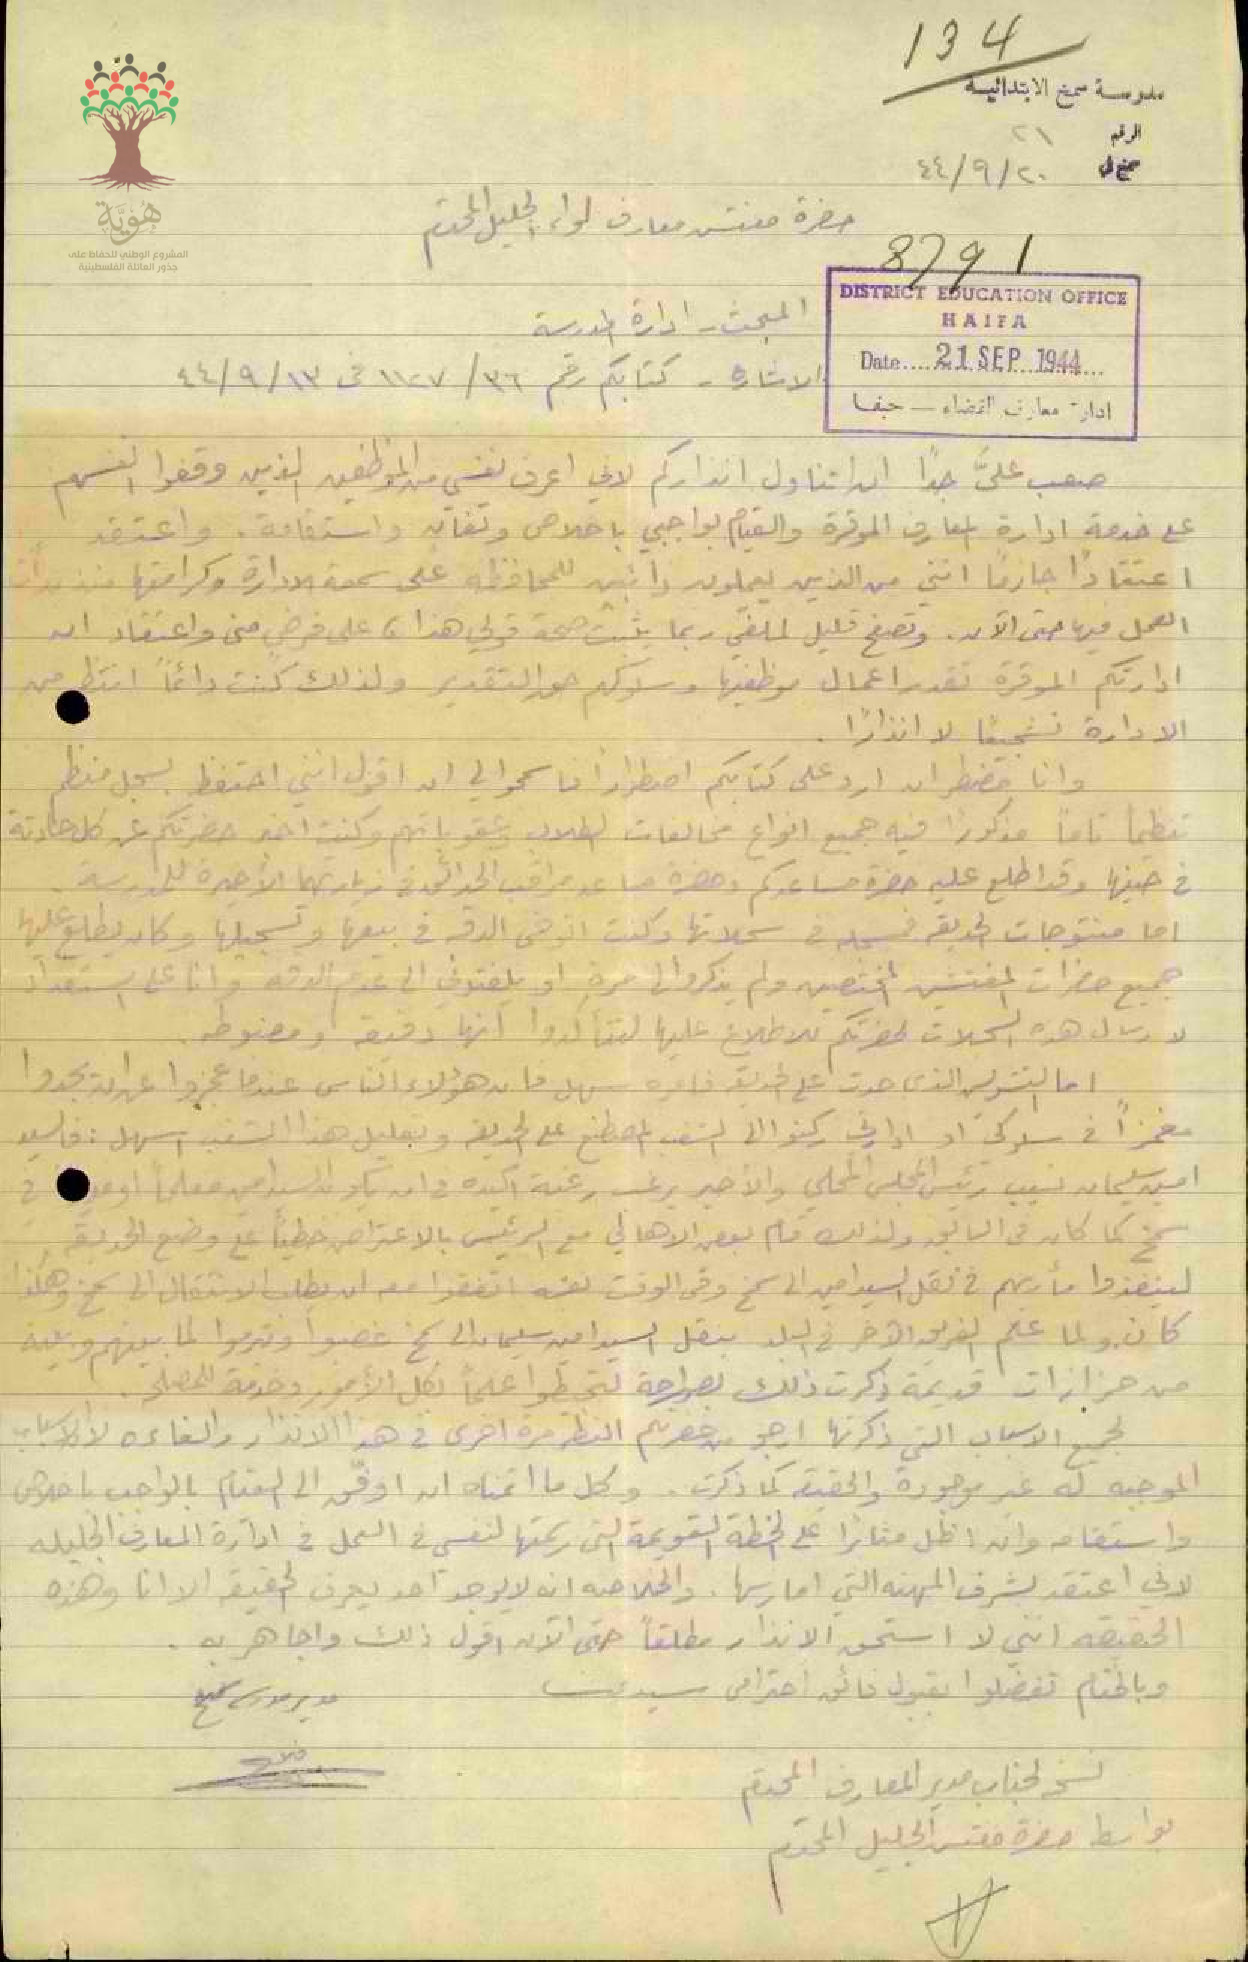 134
مدرسة سمخ الابتدائية
الرقم ٢١
سمخ في ٤٤/٩/٢٠
هُوِيَّة
المشروع الوطني للحفاظ على
جذور العائلة الفلسطينية
حضرة مفتش معارف لواء الجليل المحترم
8791
DISTRICT EDUCATION OFFICE
HAIFA
Date.... 21 SEP 1944
ادارة معارف القضاء — حيفا
المبحث - ادارة المدرسة
الاشارة - كتابكم رقم ٣٦/ ١١٢٧ في ٤٤/٩/١٣
صعب عليَّ جدًا ان اتناول انذاركم لاني اعرف نفسي من الموظفين الذين وقفوا انفسهم
على خدمة ادارة المعارف الموقرة والقيام بواجبي باخلاص وتفان واستقامة. واعتقد
اعتقادًا جازمًا انني من الذين يعملون دائبين للمحافظة على سمعة الادارة وكرامتها منذ بدأت
العمل فيها حتى الآن. وتصفح قليل لملفي ربما يثبت صحة قولي هذا على فرض مني واعتقاد ان
ادارتكم الموقرة تقدر اعمال موظفيها وسلوكهم حق التقدير ولذلك كنت دائمًا انتظر من
الادارة تشجيعًا لا انذارًا.
وانا مضطر ان ارد على كتابكم اضطرارًا فاسمحوا لي ان اقول انني احتفظ بسجل منظم
تنظيمًا تامًا مذكورًا فيه جميع انواع مخالفات الطلاب وعقوباتهم وكنت اخبر حضرتكم عن كل حادثة
في حينها وقد اطلع عليه حضرة مساعدكم وحضرة مساعد مراقب الحدائق في زيارتهما الأخيرة للمدرسة.
اما منتوجات الحديقة فمسجله في سجلاتها وكنت اتوخى الدقة في بيعها وتسجيلها وكان يطلع عليها
جميع حضرات المفتشين المختصين ولم يذكروا لي مرة او يلفتوني الى عدم الدقه وانا على استعداد
لارسال هذه السجلات لحضرتكم للاطلاع عليها لتتأكدوا انها دقيقه ومضبوطه.
اما التشويش الذي حدث على الحديقة فامره سهل فان هؤلاء الناس عندما عجزوا عن ان يجدوا
مغمزًا في سلوكي او ادارتي ركنوا الى الشغب المصطنع على الحديقه وتعليل هذا الشغب اسهل: فالسيد
امين سليمان نسيب رئيس المجلس المحلي والأخير يرغب رغبة اكيدة في ان يكون السيد امين معلمًا في
سمخ كما كان في السابق ولذلك قام بعض الاهالي مع الرئيس بالاعتراض خطيًا على وضع الحديقة
لينفذوا مأربهم في نقل السيد امين الى سمخ وفي الوقت نفسه اتفقوا معه ان يطلب الانتقال الى سمخ وهكذا
كان. ولما علم الفريق الآخر في البلد بنقل السيد امين سليمان الى سمخ غضبوا لما بينهم وبينه
من حزازات قديمة ذكرت ذلك بصراحة لتحيطوا علمًا بكل الأمور وخدمة للمصلحه.
لجميع الاسباب التي ذكرتها ارجو من حضرتكم النظر مرة اخرى في هذا الانذار والغاءه لأن الاسباب
الموجبه له غير موجودة والحقيقه كما ذكرت. وكل ما اتمناه ان اوفّق الى القيام بالواجب باخلاص
واستقامه وان اظل مثابرًا على الخطة القويمة التي رسمتها لنفسي في العمل في ادارة المعارف الجليله
لاني اعتقد بشرف المهنه التي امارسها. والخلاصه انه لا يوجد احد يعرف الحقيقه الا انا وهذه
الحقيقه انني لا استحق الانذار مطلقًا حتى الآن اقول ذلك واجاهر به.
وبالختام تفضلوا بقبول فائق احترامي سيدي
مدير مدرسة سمخ
نسخه لجناب مدير المعارف المحترم
بواسطة حضرة مفتش الجليل المحترم